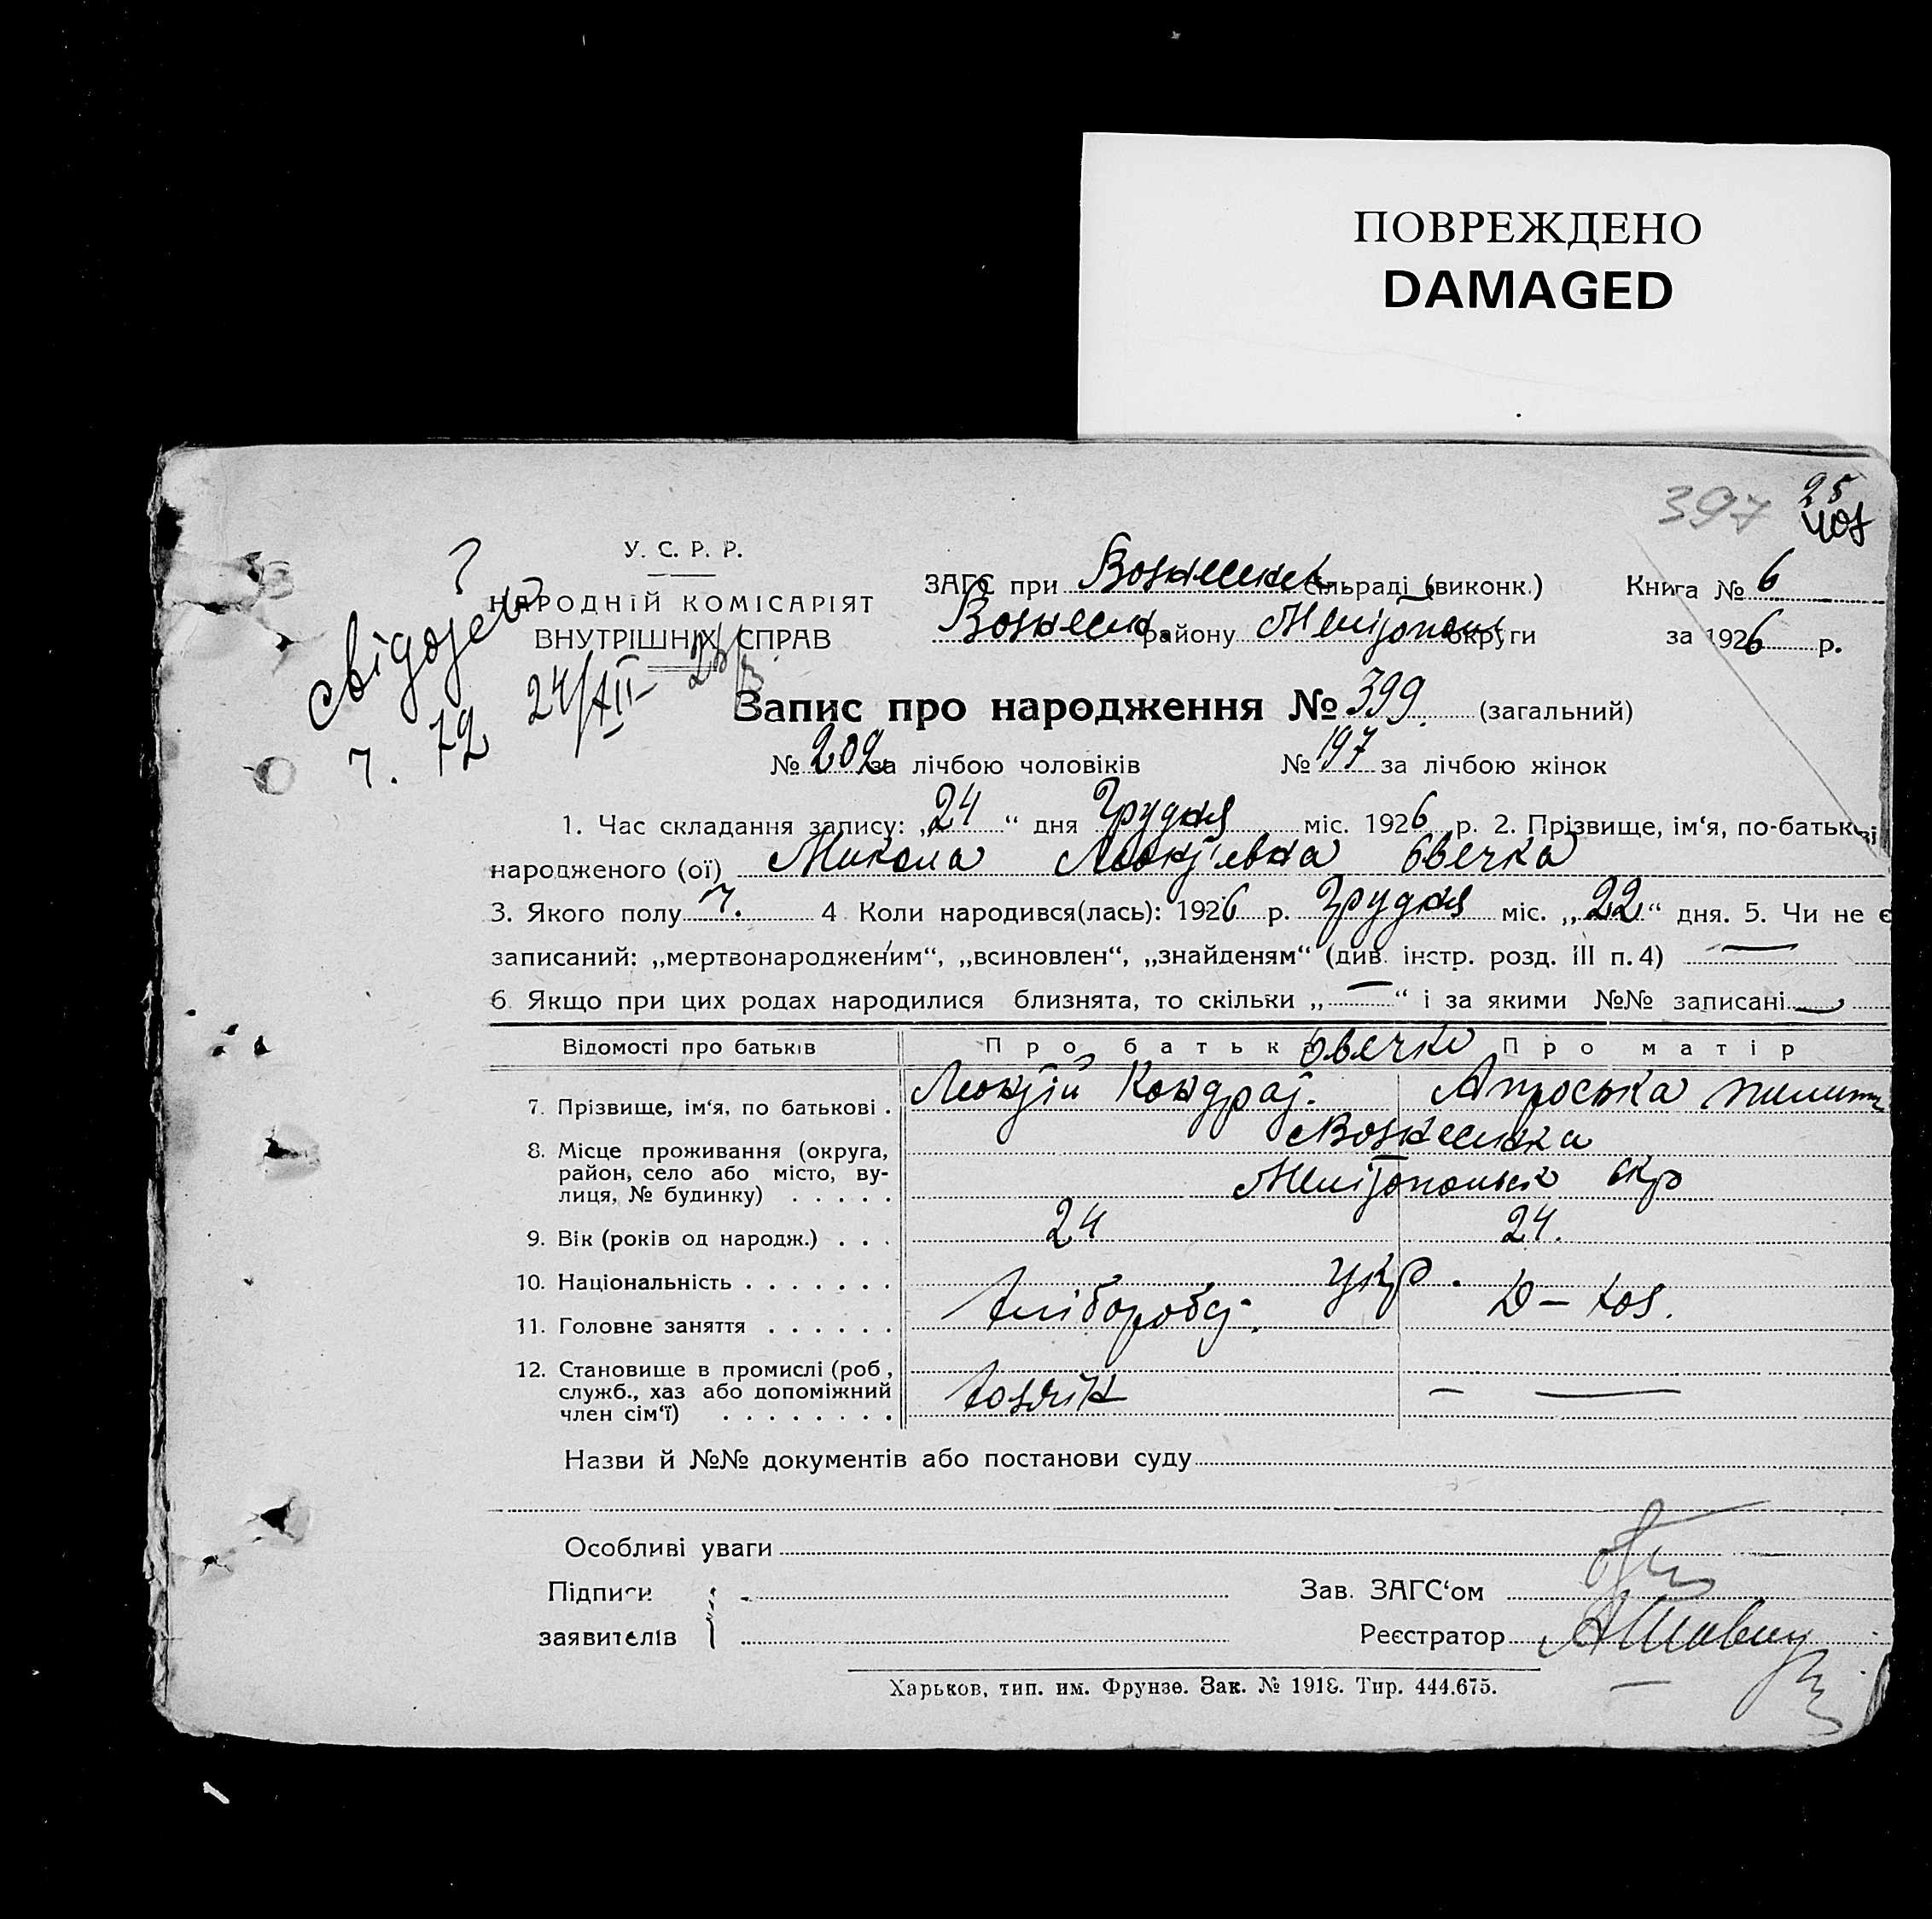 ПОВРЕЖДЕНО
DAMAGED
397 25
У. С. Р. Р.
НАРОДНІЙ КОМІСАРІЯТ
ВНУТРІШНІХ СПРАВ
ЗАГС при Вознесенск сільраді (виконк.) Книга № 6
Вознесен. району Мелітопол округи за 1926 р.
24/XII
Запис про народження № 399 (загальний)
№ 202 за лічбою чоловіків № 197 за лічбою жінок
1. Час складання запису: „24“ дня Грудня міс. 1926 р. 2. Прізвище, ім‘я, по-батькові
народженого (ої) Микола Леонтієвна Овечка
3. Якого полу ч. 4 Коли народився(лась): 1926 р. Грудня міс. „22“ дня. 5. Чи не є
записаний: „мертвонародженим“, „всиновлен“, „знайденям“ (див. інстр. розд. III п. 4) —
6 Якщо при цих родах народилися близнята, то скільки „—“ і за якими №№ записані
Відомості про батьків Про батьк Овечко Про матір
7. Прізвище, ім‘я, по батькові . Леонтій Кондрат. Апроська Пилип
8. Місце проживання (округа, Вознесенка
район, село або місто, ву-
лиця, № будинку) . . . . . Мелітопольськ окр
9. Вік (років од народж.) . . . 24 24.
10. Національність . . . . . . . укр.
11. Головне заняття . . . . . . хлібороб. Д – хоз.
12. Становище в промислі (роб,
служб., хаз або допоміжний хозяін — —
член сім‘ї) . . . . . . . .
Назви й №№ документів або постанови суду
Особливі уваги
Підписи Зав. ЗАГС‘ом
заявителів Реєстратор
Харьков, тип. им. Фрунзе. Зак. № 1918. Тир. 444.675.